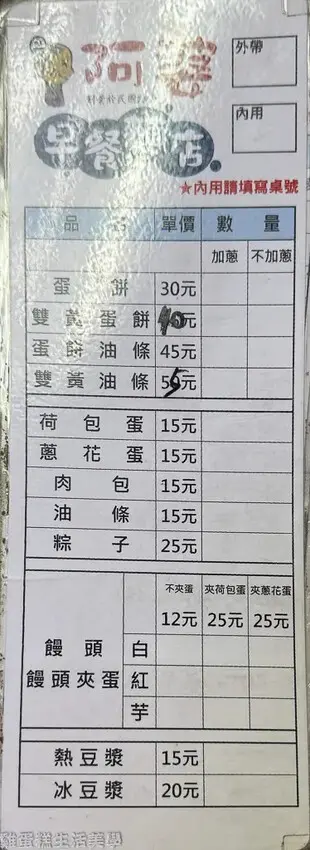 阿婆
外帶
早餐
店
內用
★內用請填寫桌號
品 名 單價 數 量
加蔥 不加蔥
蛋 餅 30元
雙黃蛋餅 40元
蛋餅油條 45元
雙黃油條 55元
荷包蛋 15元
蔥花蛋 15元
肉包 15元
油條 15元
粽子 25元
不夾蛋 夾荷包蛋 夾蔥花蛋
12元 25元 25元
饅頭 白
饅頭夾蛋 紅
芋
熱豆漿 15元
冰豆漿 20元
雞蛋糕生活美學